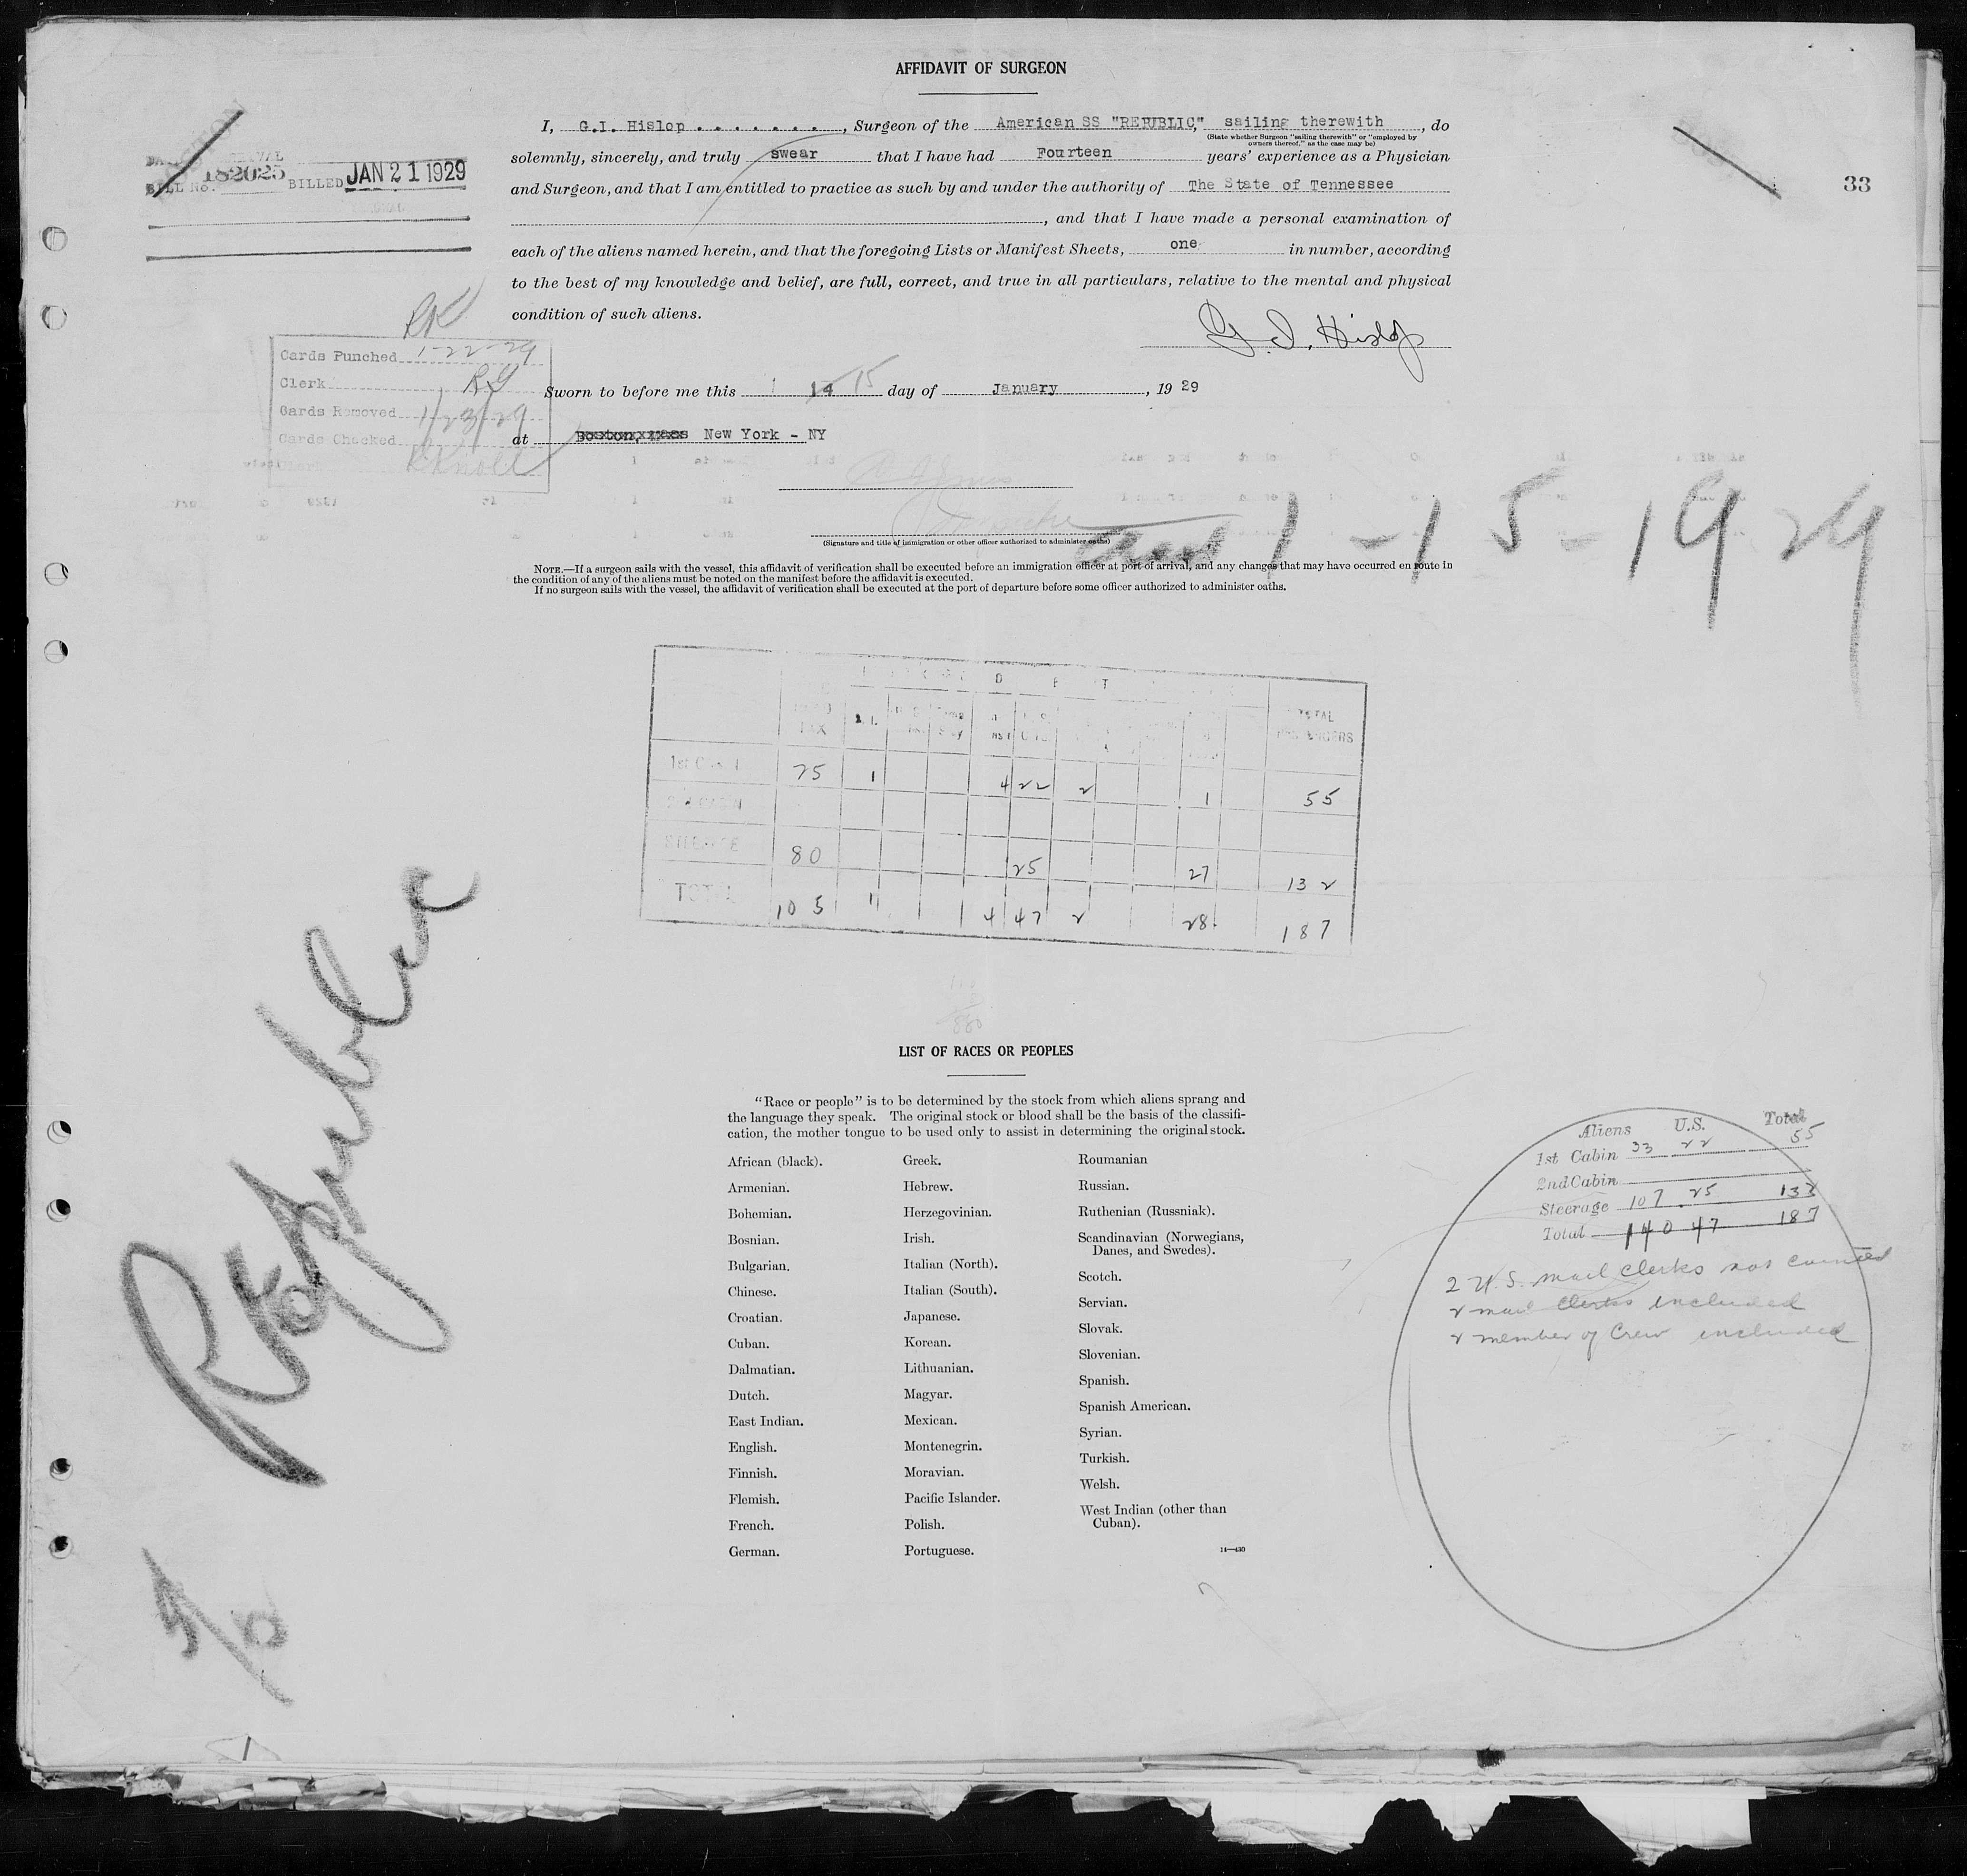 AFFIDAVIT OF SURGEON
I, G.I. Hislop . . . . . . . , Surgeon of the American SS "REPUBLIC," sailing therewith , do
(State whether Surgeon "sailing therewith" or "employed by
owners thereof," as the case may be)
solemnly, sincerely, and truly swear that I have had Fourteen years' experience as a Physician
and Surgeon, and that I am entitled to practice as such by and under the authority of The State of Tennessee
, and that I have made a personal examination of
each of the aliens named herein, and that the foregoing Lists or Manifest Sheets, one in number, according
to the best of my knowledge and belief, are full, correct, and true in all particulars, relative to the mental and physical
condition of such aliens.
G. I. Hislop
BILL No. 182025 BILLED JAN 21 1929
33
RK
Cards Punched 1-22-29
Clerk RG
Cards Removed 1/23/29
Cards Checked
Knoll
Sworn to before me this 14 15 day of January , 19 29
at Boston, Mass New York - NY
(Signature and title of immigration or other officer authorized to administer oaths)
1-15-1929
NOTE.—If a surgeon sails with the vessel, this affidavit of verification shall be executed before an immigration officer at port of arrival, and any changes that may have occurred en route in
the condition of any of the aliens must be noted on the manifest before the affidavit is executed.
If no surgeon sails with the vessel, the affidavit of verification shall be executed at the port of departure before some officer authorized to administer oaths.
TOTAL
1st 25 1 4 22 2 1 55
STEERAGE 80 25 27 132
TOTAL 105 1 4 47 2 28 187
Republic
LIST OF RACES OR PEOPLES
"Race or people" is to be determined by the stock from which aliens sprang and
the language they speak. The original stock or blood shall be the basis of the classifi-
cation, the mother tongue to be used only to assist in determining the original stock.
African (black).
Armenian.
Bohemian.
Bosnian.
Bulgarian.
Chinese.
Croatian.
Cuban.
Dalmatian.
Dutch.
East Indian.
English.
Finnish.
Flemish.
French.
German.
Greek.
Hebrew.
Herzegovinian.
Irish.
Italian (North).
Italian (South).
Japanese.
Korean.
Lithuanian.
Magyar.
Mexican.
Montenegrin.
Moravian.
Pacific Islander.
Polish.
Portuguese.
Roumanian
Russian.
Ruthenian (Russniak).
Scandinavian (Norwegians,
Danes, and Swedes).
Scotch.
Servian.
Slovak.
Slovenian.
Spanish.
Spanish American.
Syrian.
Turkish.
Welsh.
West Indian (other than
Cuban).
14—430
Aliens U.S. Total
1st Cabin 33 22 55
2nd Cabin
Steerage 107 25 132
Total 140 47 187
2 U.S. mail Clerks not counted
2 mail Clerks included
2 member of Crew included